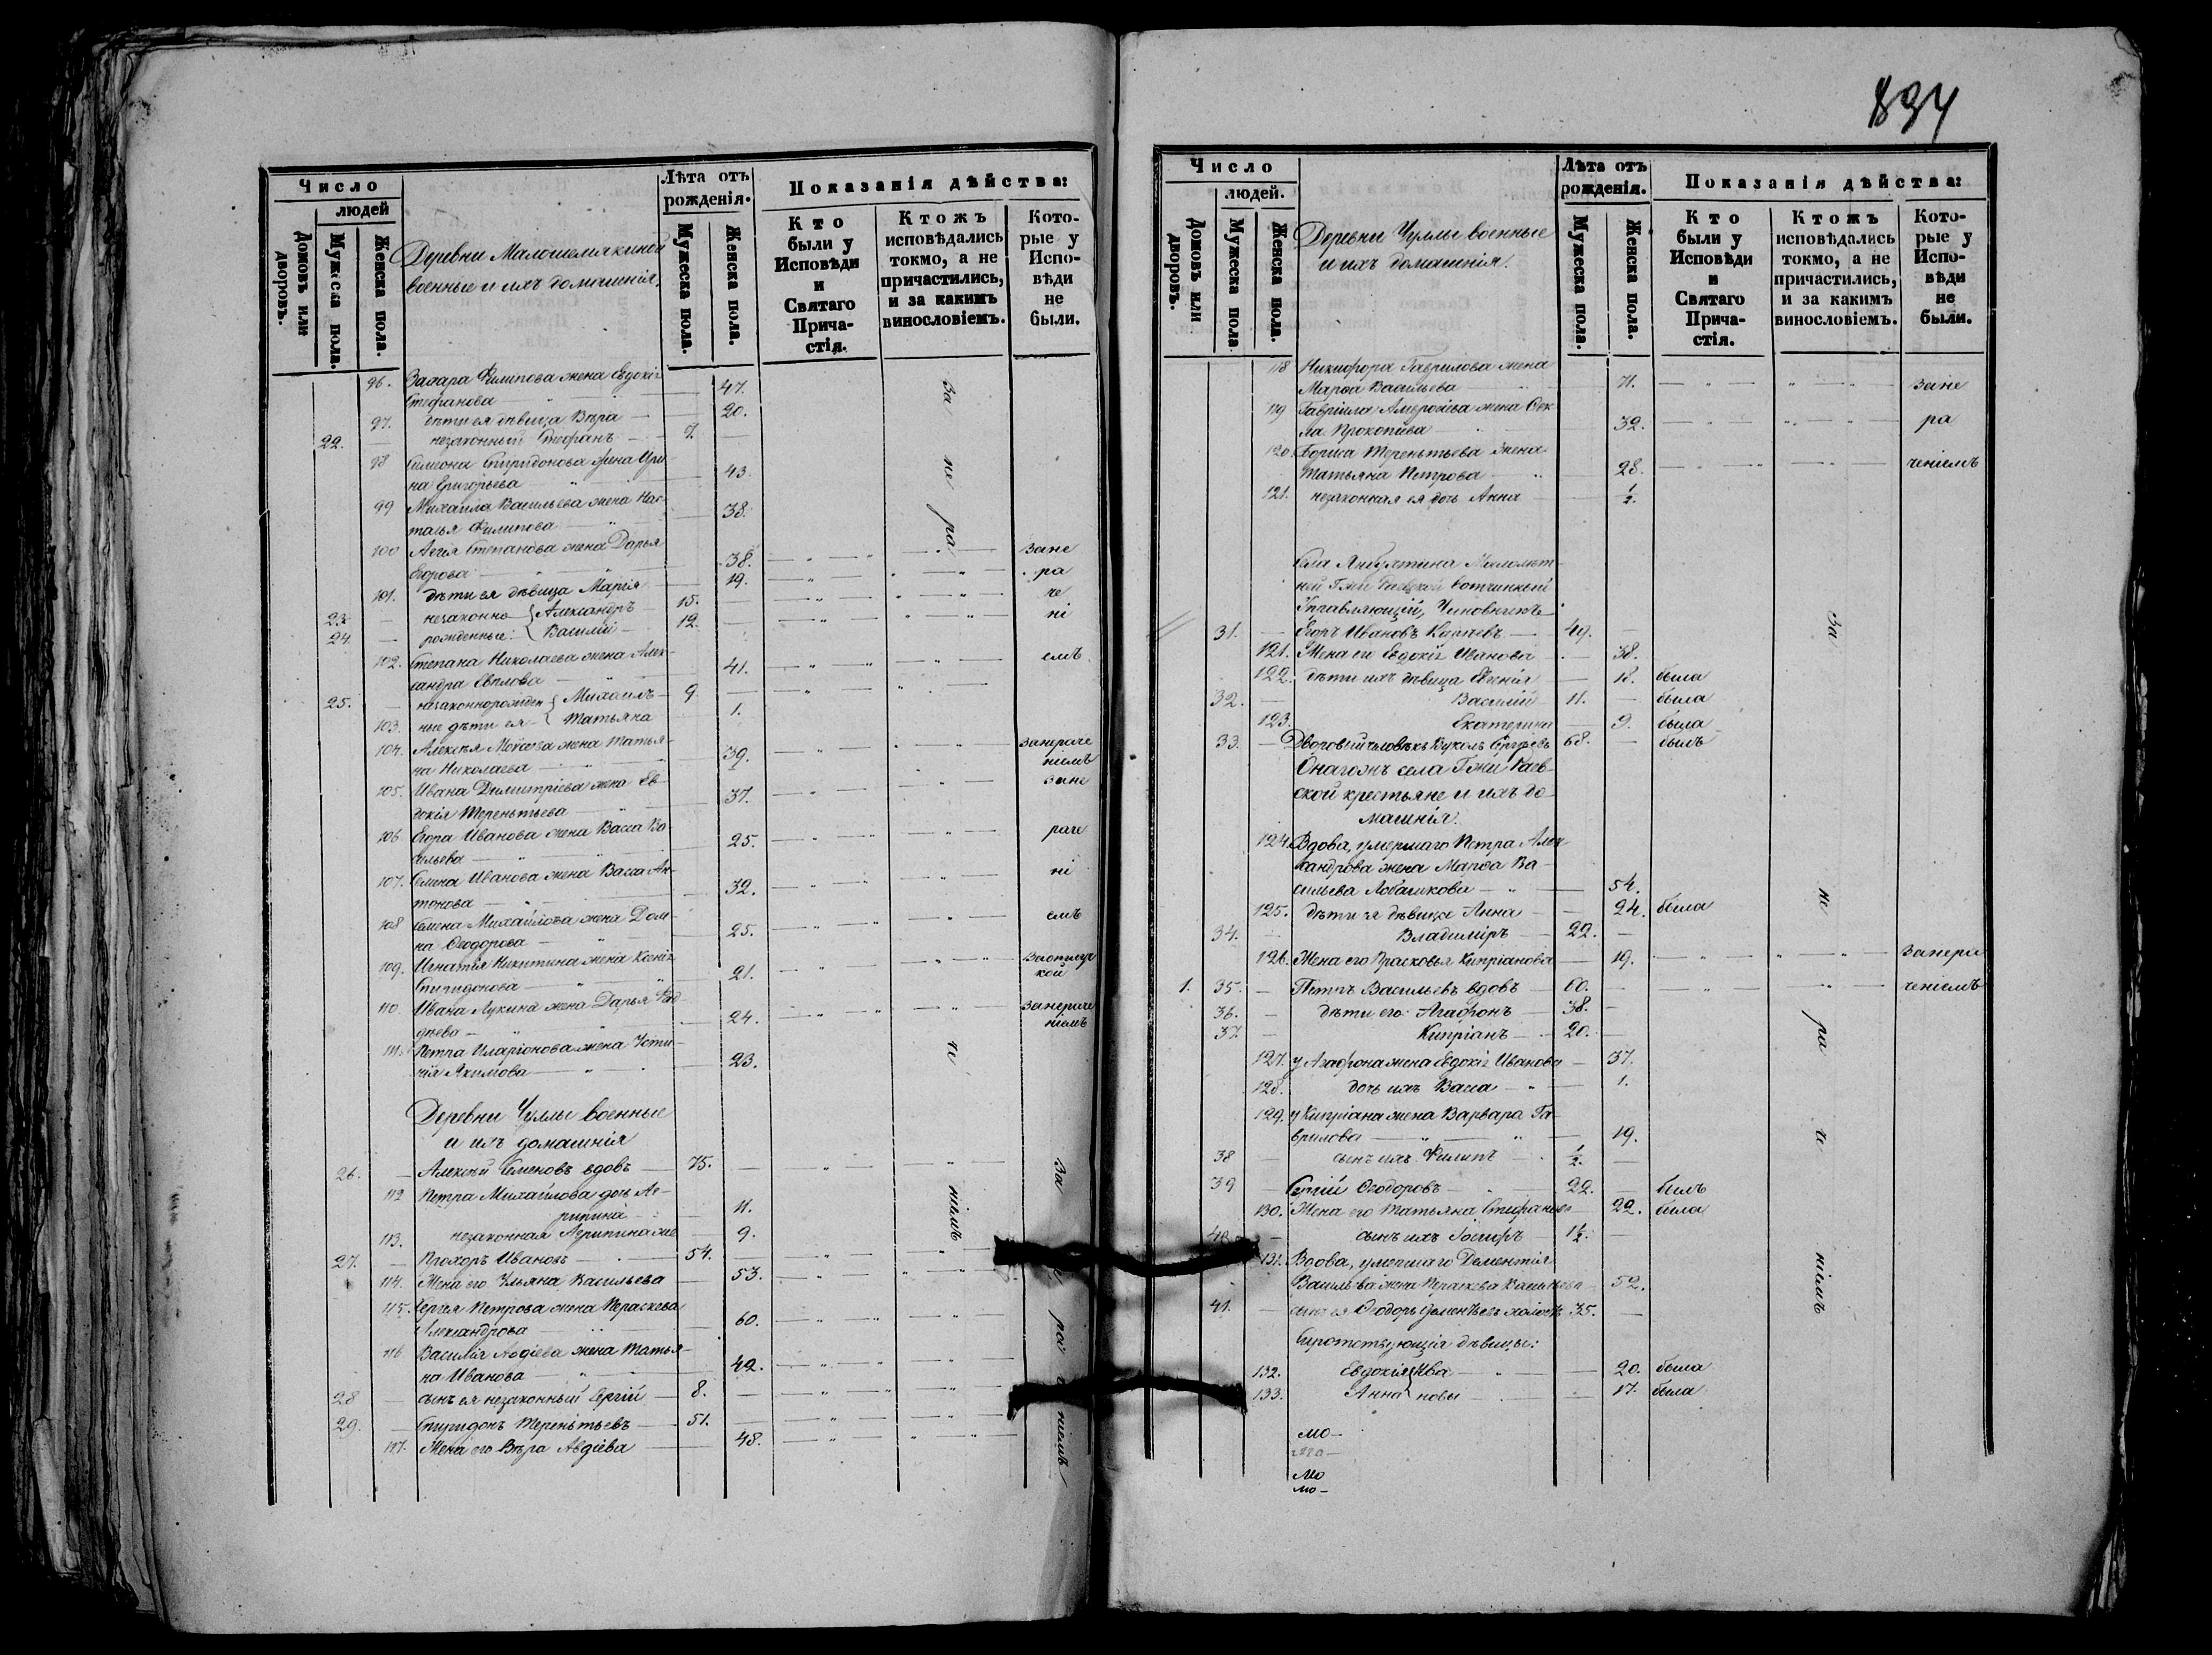 894
Число
людей
Домовъ или дворовъ.
Мужеска пола.
Женска пола.
Деревни Малошемякиной
военные и ихъ домашнія.
Лѣта отъ
рожденія.
Мужеска пола.
Женска пола.
Показанія дѣйства:
Кто были у Исповѣди и Святаго Прича-стія.
Ктожъ исповѣдались токмо, а не причастились, и за какимъ винословіемъ.
Кото-рые у Испо-вѣди не были.
96. Захара Филипова жена Евдокія
Стефанова 47.
97. дѣти ея дѣвица Вѣра 20.
22. незаконный Стефанъ 7.
98 Симеона Спиридонова жена Ири-
на Григорьева 43.
99 Михаила Васильева жена Нас-
тасья Филипова 38.
100 Степанова жена Дарья
Егорова 38. зане
101. дѣти ея дѣвица Марія 19. ра
23 незаконно Александръ 15. че
24 рожденные: Василій 12. ні
102. Степана Николаева жена Алек-
сандра 41. емъ
25. незаконнорожден Михаилъ 9
103. ные дѣти ея Татьяна 1.
104. Алексѣя жена Татья-
на Николаева 39. занераче
ніемъ
105. Ивана Димитріева жена Ев-
докія Терентьева 37. зане
106 Егора Иванова жена Васса Ва-
сильева 25. раче
107. Семена Иванова жена Васса Ан-
тонова 32. ні
108 Семена Михайлова жена Дом-
на Ѳеодорова 25. емъ
109. Игнатія Никитина жена Ксенія
Спиридонова 21. заотлуч
кой
110. Ивана Лукина жена Дарья
24. занераче
ніемъ
111. Петра Иларіонова жена Усти-
нія Якимова 23.
за не ра че ніемъ
Деревни Чулпы военные
и ихъ домашнія
26. Алексѣй Семеновъ вдовъ 75.
112 Петра Михайлова дочь Аг-
рипина 11.
113. незаконная Агрипина же 9.
27. Прохоръ Ивановъ 54.
114. Жена его Ульяна Васильева 53.
115. Сергія Петрова жена Параскева
Александрова 60.
116 Василія Авдіева жена Татья-
на Иванова 42.
28 сынъ ея незаконный Сергій 8.
29. Спиридонъ Терентьевъ 51.
117. Жена его Вѣра Авдіева 48.
Число
людей.
Домовъ или дворовъ.
Мужеска пола
Женска пола.
Деревни Чулпы военные
и ихъ домашнія.
Лѣта отъ
рожденія.
Мужеска пола.
Женска пола.
Показанія дѣйства:
Кто были у Исповѣди и Святаго Прича-стія.
Ктожъ исповѣдались токмо, а не причастились, и за какимъ винословіемъ.
Кото-рые у Испо-вѣди не были.
118 Никифора Гаврилова жена
Марѳа Васильева 71. зане
119 Гавріила Амвросіева жена Ѳек-
ла Прокопіева 32. ра
120. Бориса Терентьева жена
Татьяна Петрова 28. ченіемъ
121. незаконная ея дочь Анна 1/2.
Села
Гжи вотчинный
Управляющій, Чиновникъ
31. Егоръ Ивановъ 49.
121. Жена его Евдокія Иванова 38.
122. дѣти ихъ дѣвица Евгенія 18. была
32. Василій 11. была
123. Екатерина 9. была
33. Дворовый человѣкъ 68. былъ
Онагожъ села Гжи
ской крестьяне и ихъ до-
машнія.
124. Вдова, умершаго Петра Алек
сандрова жена Марѳа Ва-
сильева 54.
125. дѣти ея дѣвица Анна 24. была
34. Владиміръ 22.
126. Жена его Прасковья Кипріанова 19. занера
1. 35. Петръ Васильевъ вдовъ 60. ченіемъ
36. дѣти его: Агафонъ 38.
37. Кипріанъ 20.
127. у Агафона жена Евдокія Иванова 37.
128. дочь ихъ Васса 1.
129. у Кипріана жена Варвара Га-
врилова 19.
38 сынъ ихъ Филипъ 1/2.
39 Сергій Ѳеодоровъ 22. былъ
130. Жена его Татьяна Стефанова 22. была
40. сынъ ихъ Іосифъ 1 1/2.
131. Вдова, умершаго Дементія
Васильева жена Параскева Васильева 52.
41. сынъ ея Ѳеодоръ Дементьевъ холостъ 35.
Сиротствующія дѣвицы:
132. Евдокія Ива 20. была
133. Анна новы 17. была
за не ра че ніемъ
мо-
мо-
мо
мо-